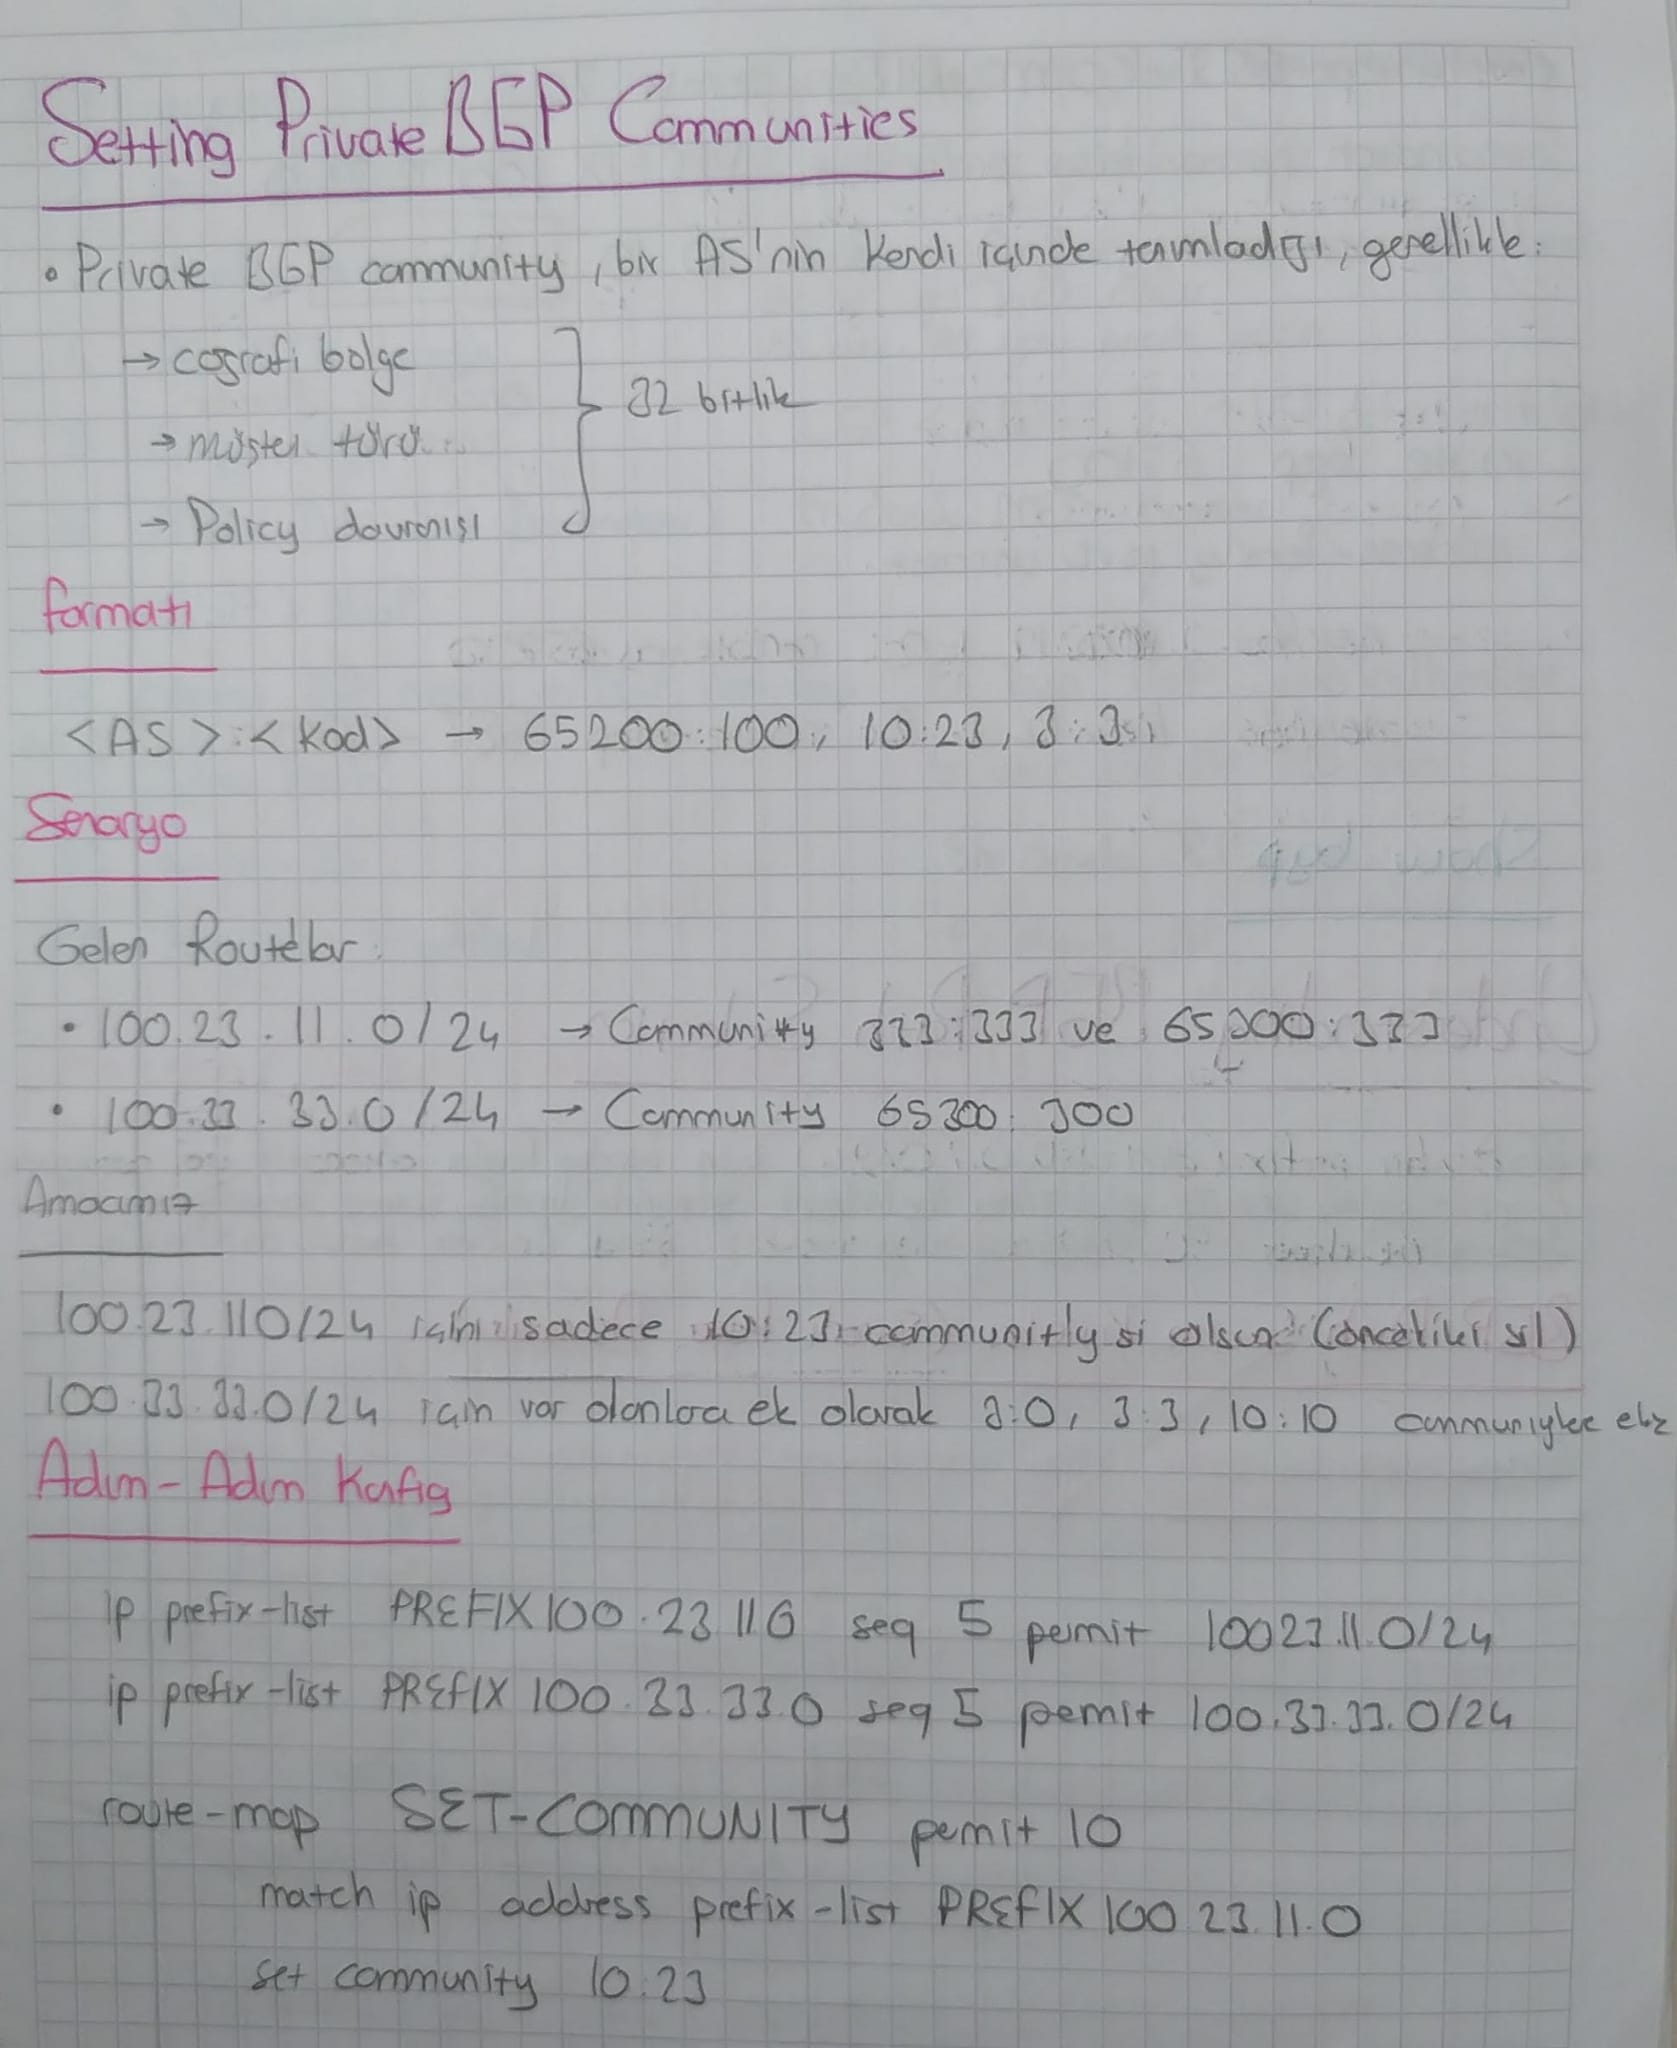 Setting Private BGP Communities
• Private BGP community, bir AS'nin kendi içinde tanımladığı, genellikle:
→ coğrafi bölge
→ müşteri türü
→ Policy davranışı
32 bitlik
formatı
<AS>:<kod> → 65200:100, 10:23, 3:3
Senaryo
Gelen Route'lar
• 100.23.11.0/24 → Community 333:333 ve 65300:333
• 100.33.33.0/24 → Community 65300:300
Amacımız
100.23.11.0/24 için sadece 10:23 community si olsun (öncekileri sil)
100.33.33.0/24 için var olanlara ek olarak 3:0, 3:3, 10:10
Adım-Adım Konfig
ip prefix-list PREFIX100.23.11.0 seq 5 permit 100.23.11.0/24
ip prefix-list PREFIX 100.33.33.0 seq 5 permit 100.33.33.0/24
route-map SET-COMMUNITY permit 10
match ip address prefix-list PREFIX 100.23.11.0
set community 10:23